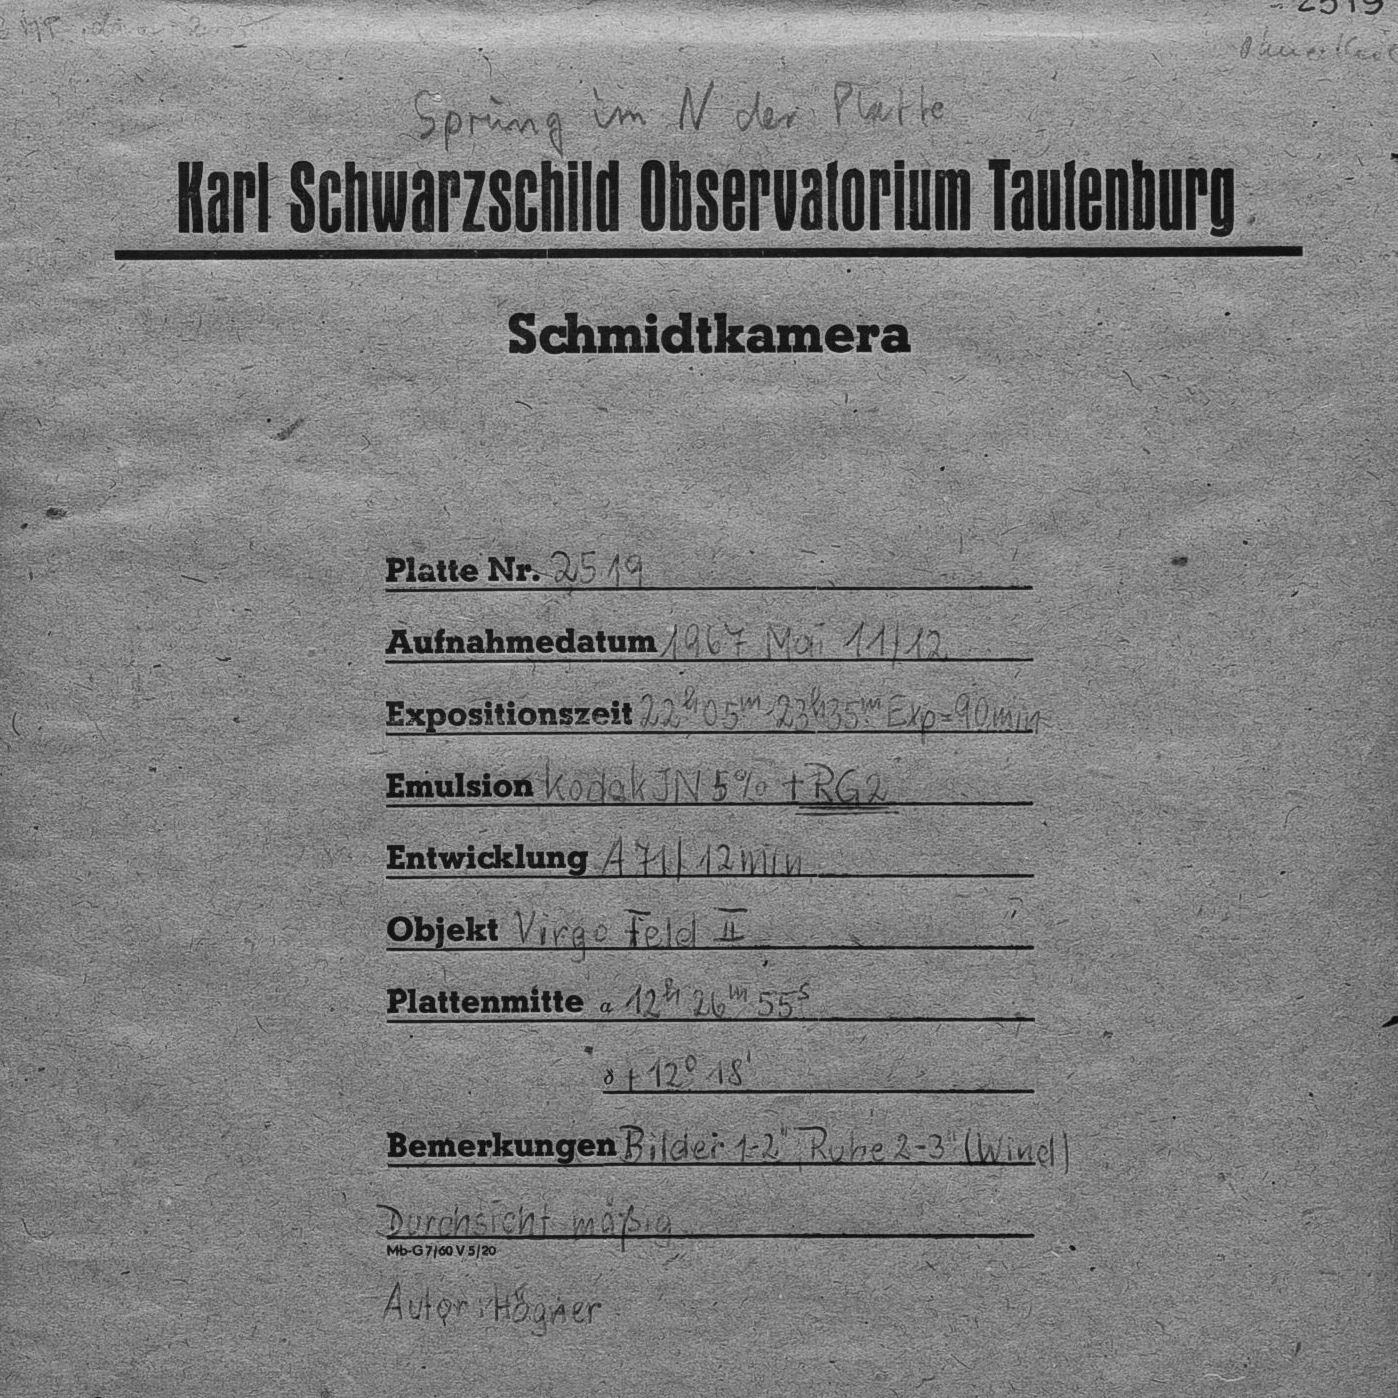 2519
Sprung im N der Platte
Karl Schwarzschild Observatorium Tautenburg
Schmidtkamera
Platte Nr. 2519
Aufnahmedatum 1967 Mai 11/12
Expositionszeit 22h05m-23h35m Exp=90min
Emulsion Kodak JN 5% + RG2
Entwicklung A71/12min
Objekt Virgo Feld II
Plattenmitte α 12h 26m 55s
δ + 12° 18'
Bemerkungen Bilder 1-2", Ruhe 2-3" (Wind)
Durchsicht mäßig
Mb-G 7/60 V 5/20
Autor: Högner